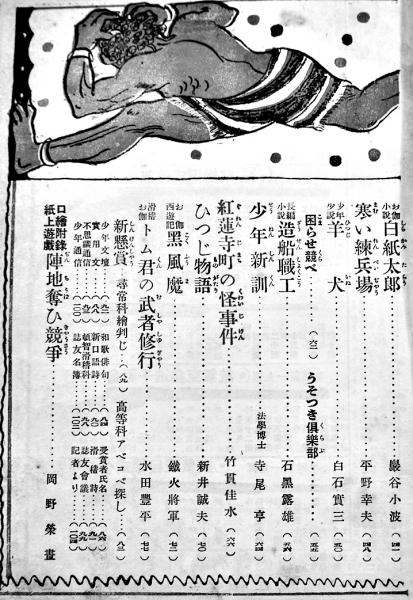 お伽小説 白紙太郎 ………… 巖谷小波 (四一)
寒い練兵場 ………… 平野幸夫 (四八)
少年小説 羊犬 ………… 白石實三 (五〇)
困らせ競べ ………… (六三) うそつき倶樂部 ………… (五五)
長編小説 造船職工 ………… 石黑露雄 (五六)
少年新訓 ………… 法學博士 寺尾亨 (六四)
紅蓮寺町の怪事件 ………… 竹貫佳水 (六六)
ひつじ物語 ………… 新井誠夫 (七〇)
お伽西遊記 黑風魔 ………… 鐵火將軍 (七二)
滑稽お伽 トム君の武者修行 ………… 水田豐平 (七七)
新懸賞 尋常科繪判じ…(八九) 高等科アベコベ探し…(八三)
少年文壇 (九二) 和歌俳句 (八四) 受賞者氏名 (八六)
實用文 新口語詩 滑稽詩 (九一)
不思議通信 頓智常陸科 誌友會議
少年通信 (一〇〇) 誌友名簿 (一〇二) 記者より (一〇四)
口繪附錄 紙上遊戲 陣地奪ひ競爭 ………… 岡野榮畫